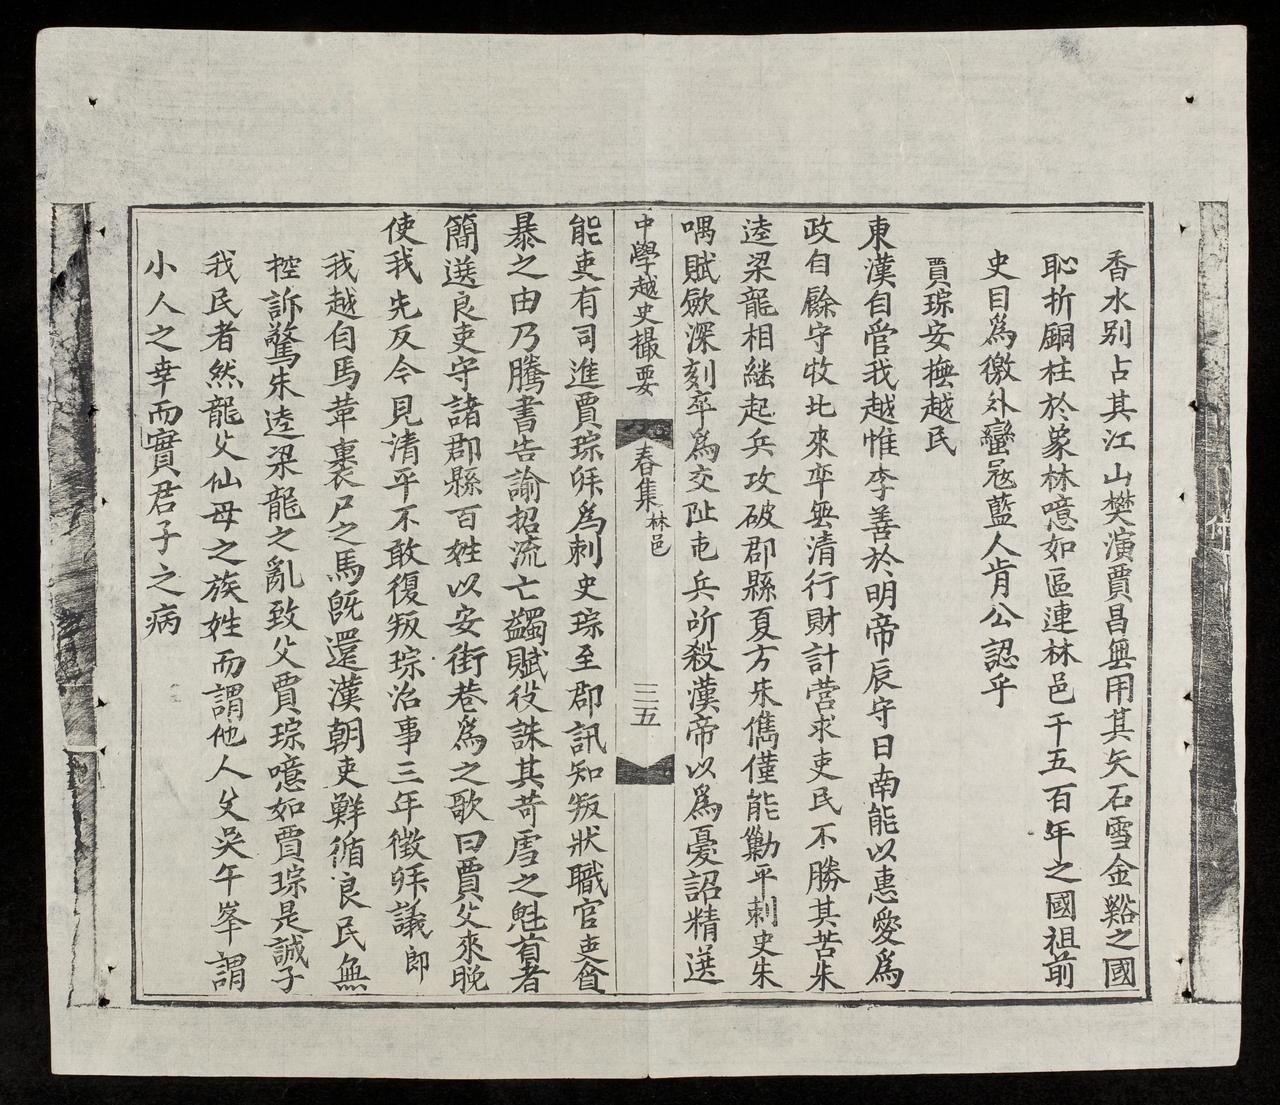 香水别占其江山樊演賈昌無用其矢石雪金谿之國
恥折銅柱於象林噫如區連林邑千五百年之國祖前
史目為徼外蠻寇藍人肯公認乎
賈琮安撫越民
東漢自管我越惟李善於明帝辰守日南能以惠愛為
政自餘守牧比來率無清行財計營求吏民不勝其苦朱
逵梁龍相継起兵攻破郡縣夏方朱儁僅能勦平刺史朱
喁賦斂深刻卒為交趾屯兵所殺漢帝以為憂詔精選
中學越史撮要
春集 林邑
三五
能吏有司進賈琮拜為刺史琮至郡訊知叛狀職官吏貪
暴之由乃騰書告諭招流亡蠲賦役誅其苛虐之魁首者
簡選良吏守諸郡縣百姓以安街巷為之歌曰賈父來晚
使我先反今見清平不敢復叛琮治事三年徵拜議郎
我越自馬革裹尸之馬旣還漢朝吏鮮循良民無
控訴驚朱逵梁龍之亂致父賈琮噫如賈琮是誠子
我民者然龍父仙母之族姓而謂他人父吳午峯謂
小人之幸而實君子之病